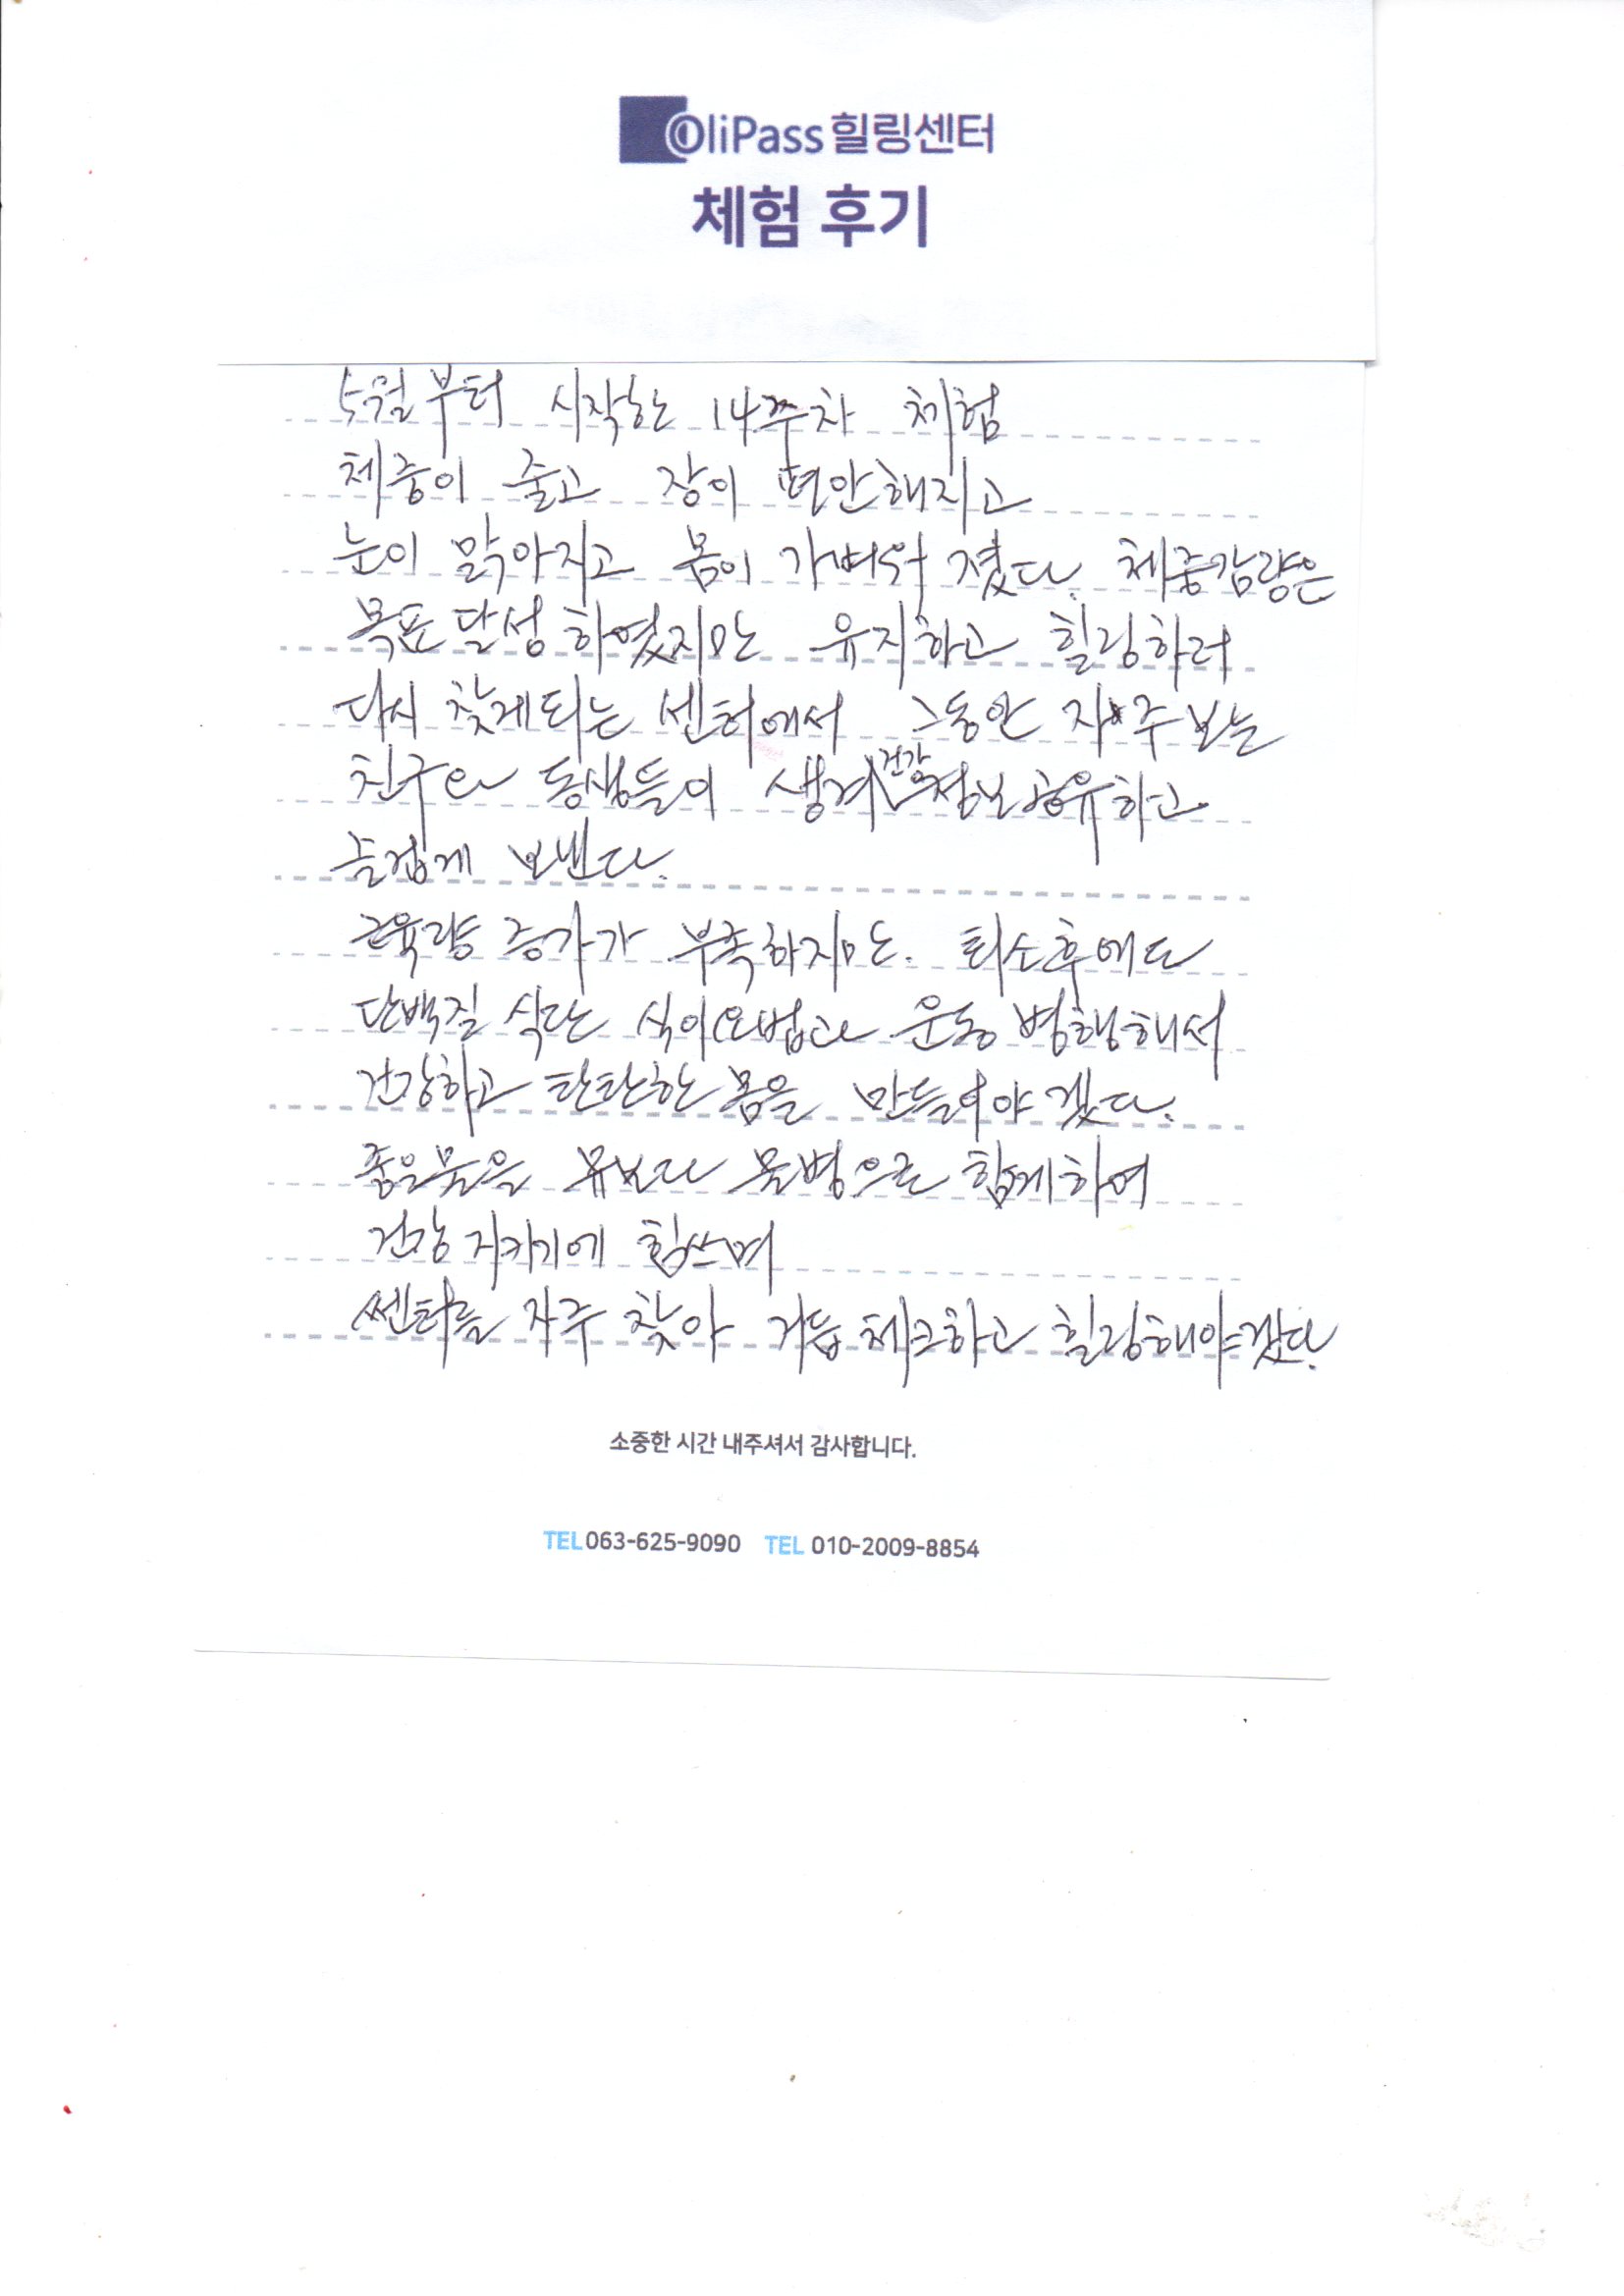 OliPass 힐링센터
체험 후기
5월부터 시작한 14주차 체험
체중이 줄고 장이 편안해지고
눈이 맑아지고 몸이 가벼워 졌다. 체중감량은
목표달성 하였지만 유지하고 힐링하러
다시 찾게되는 센터에서 그동안 자주 보는
친구와 동생들이 생겨 건강정보 공유하고
즐겁게 보낸다.
근육량 증가가 부족하지만. 퇴소후에도
단백질 식단 식이요법과 운동 병행해서
건강하고 탄탄한 몸을 만들어야 겠다.
좋은물을 물병으로 함께하여
건강 지키기에 힘쓰며
쎈터를 자주 찾아 거듭 체크하고 힐링해야겠다.
소중한 시간 내주셔서 감사합니다.
TEL 063-625-9090 TEL 010-2009-8854